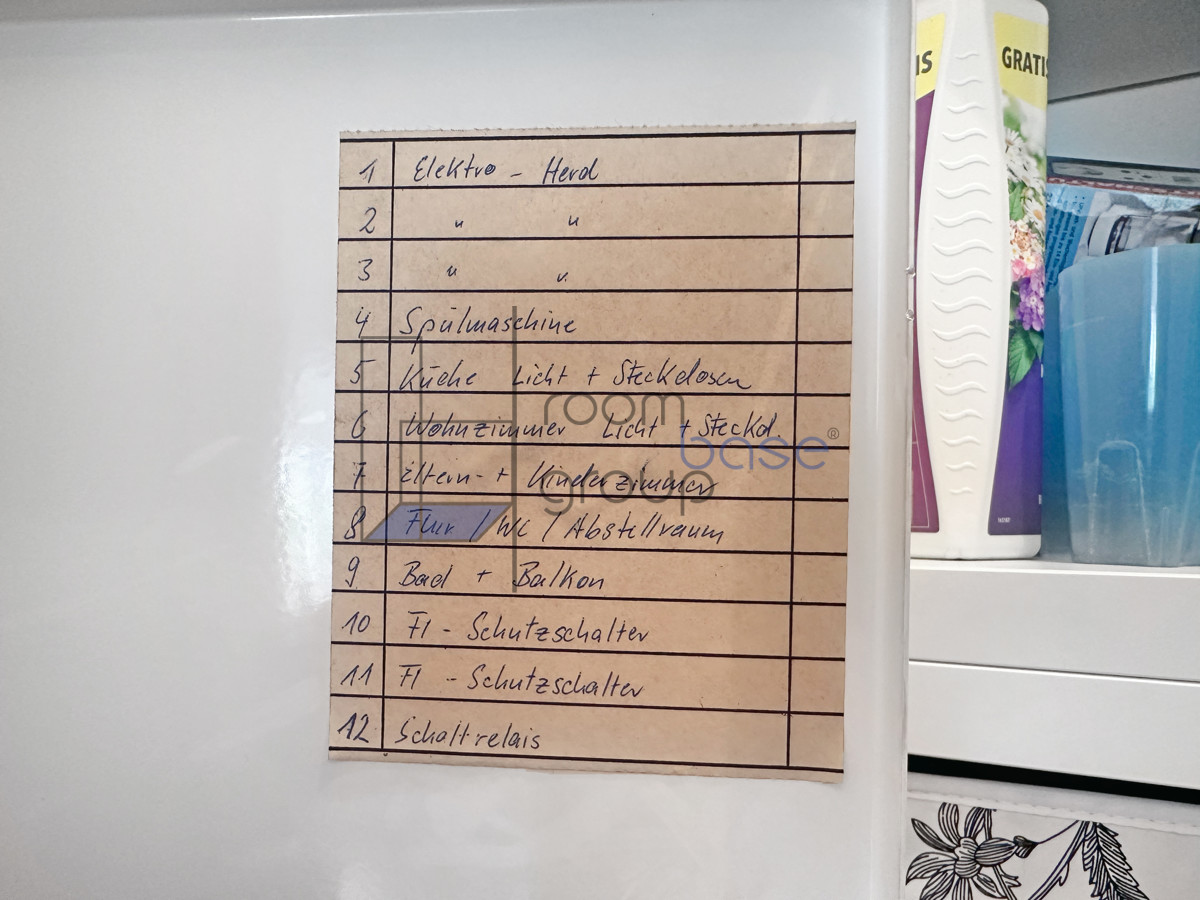 1 Elektro - Herd
2 " "
3 " "
4 Spülmaschine
5 Küche Licht + Steckdosen
6 Wohnzimmer Licht + Steckd.
7 Eltern- + Kinderzimmer
8 Flur / WC / Abstellraum
9 Bad + Balkon
10 FI - Schutzschalter
11 FI - Schutzschalter
12 Schaltrelais
room
base®
group
IS
GRATIS